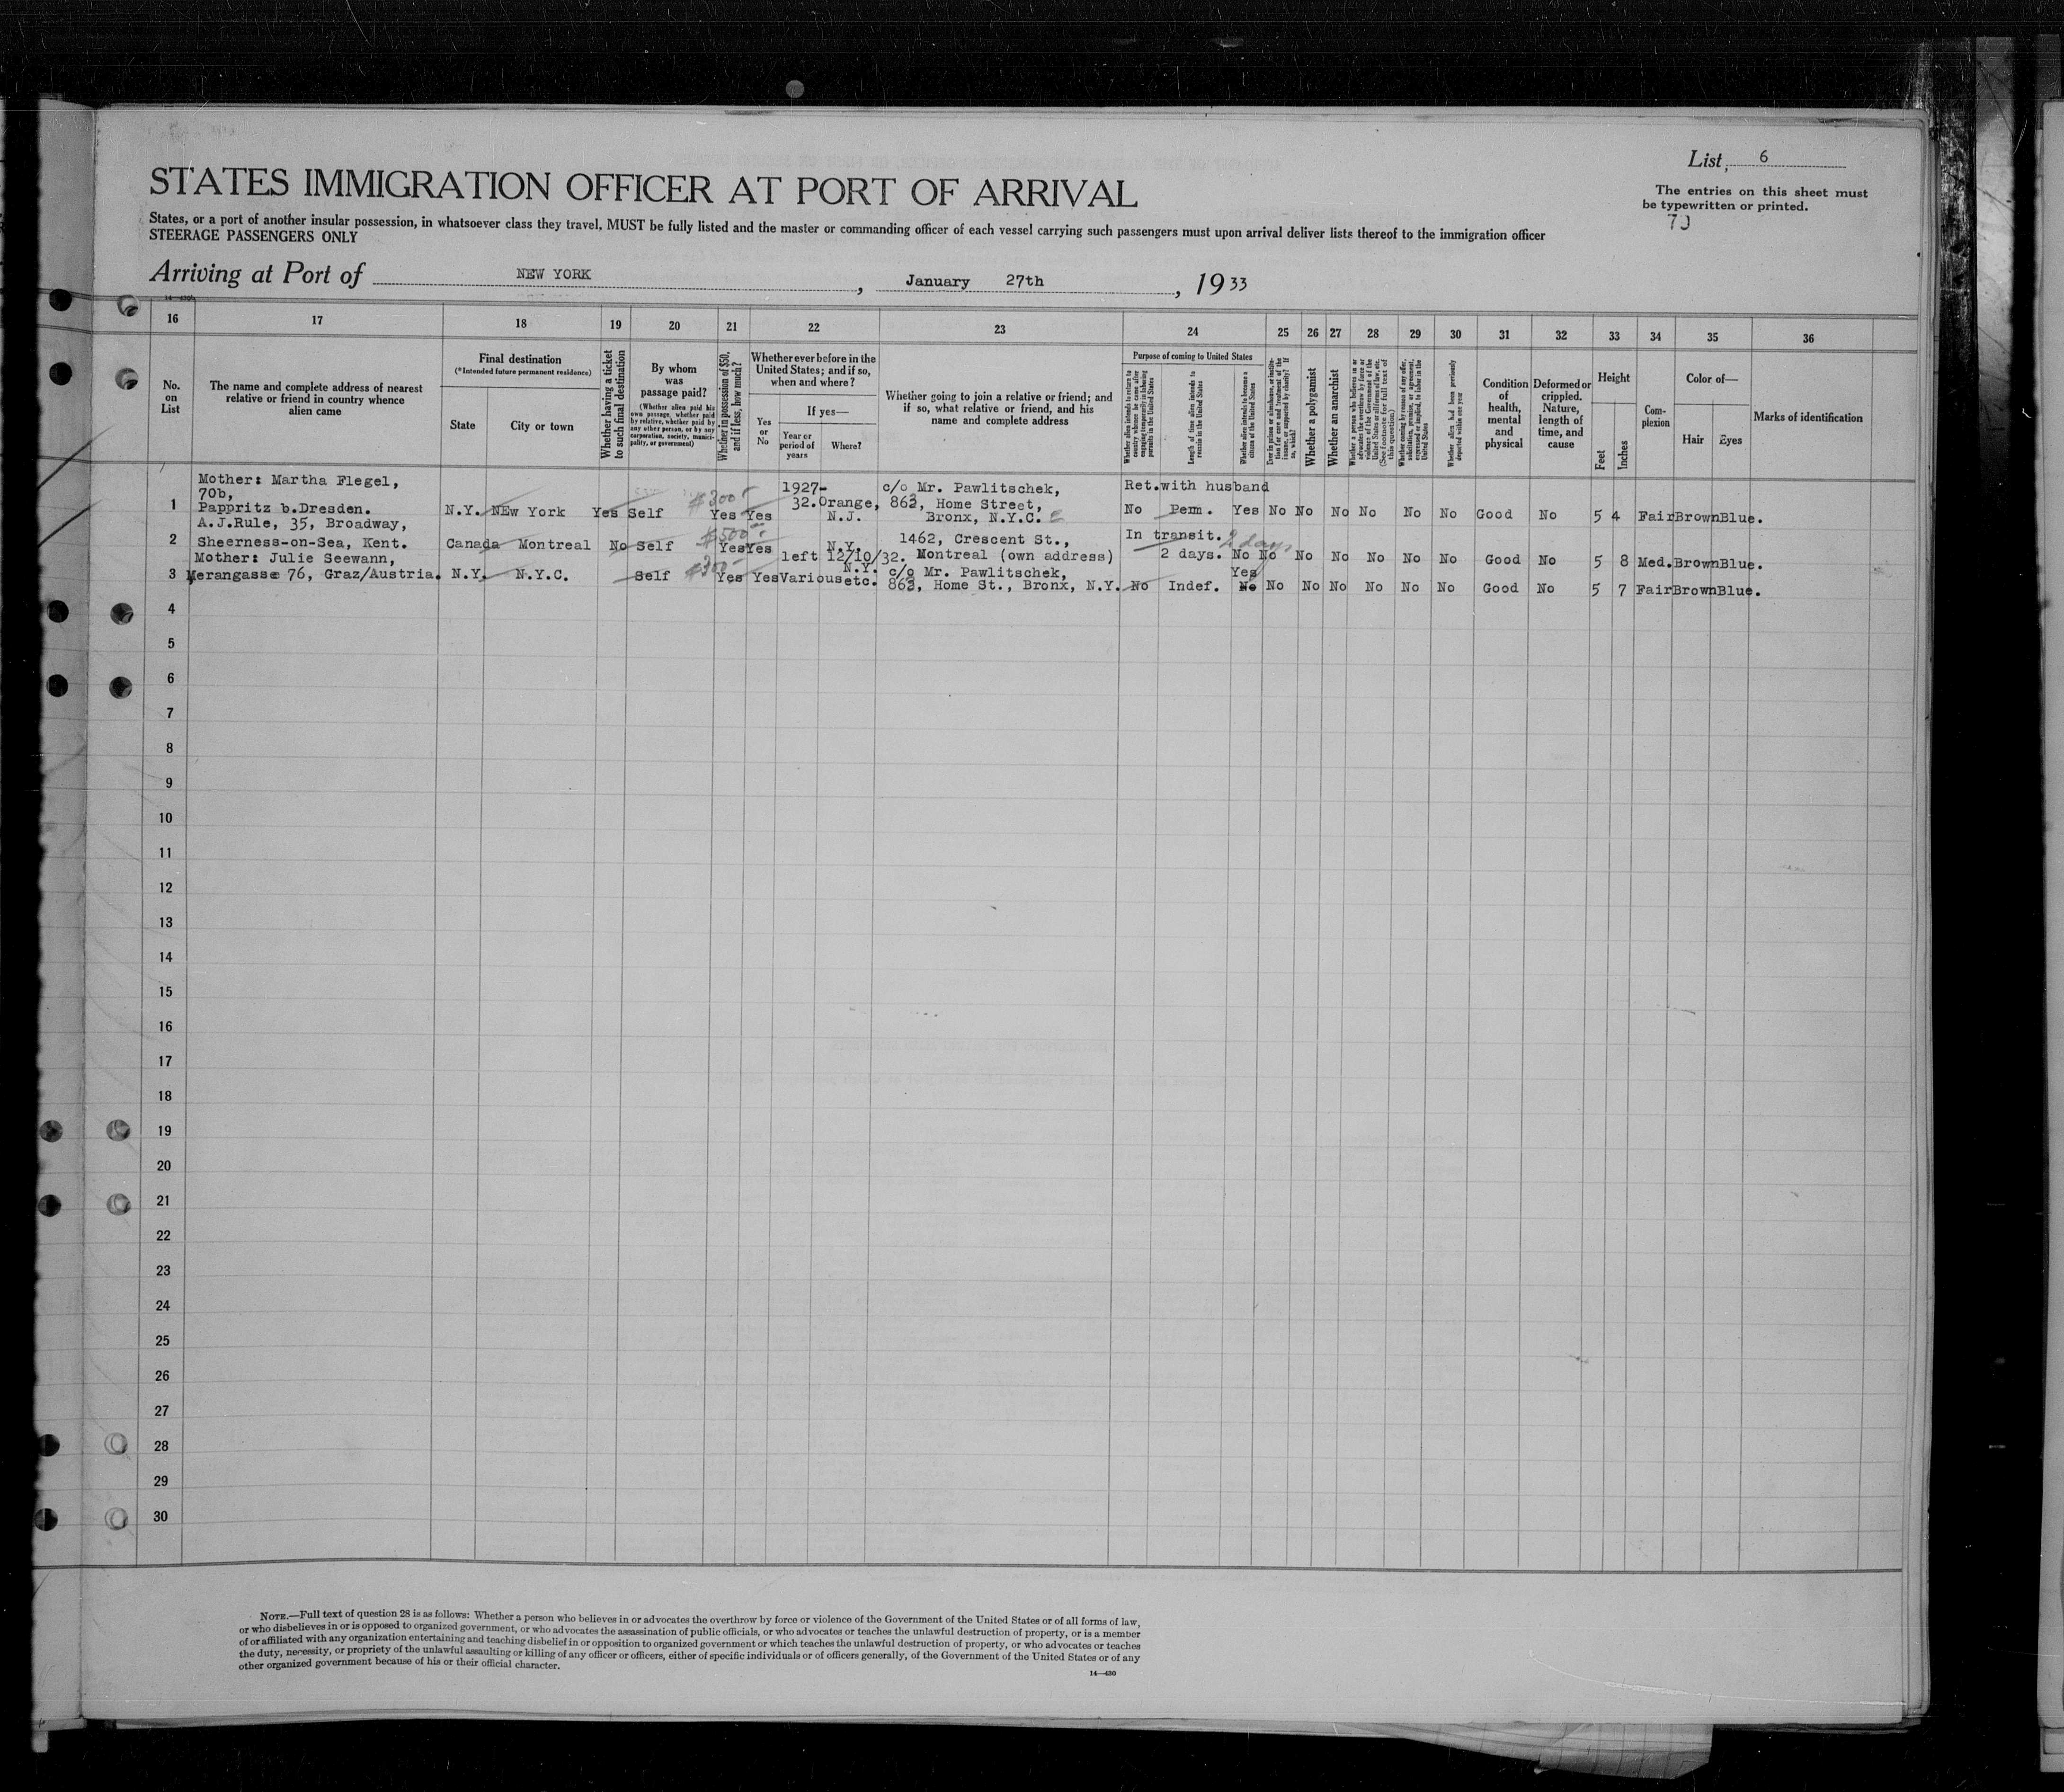 List, 6
The entries on this sheet must
be typewritten or printed.
STATES IMMIGRATION OFFICER AT PORT OF ARRIVAL
States, or a port of another insular possession, in whatsoever class they travel, MUST be fully listed and the master or commanding officer of each vessel carrying such passengers must upon arrival deliver lists thereof to the immigration officer
STEERAGE PASSENGERS ONLY
Arriving at Port of NEW YORK, January 27th, 1933
16 17 18 19 20 21 22 23 24 25 26 27 28 29 30 31 32 33 34 35 36
No.
on
List
The name and complete address of nearest
relative or friend in country whence
alien came
Final destination
(*Intended future permanent residence)
State
City or town
Whether having a ticket
to such final destination
By whom
was
passage paid?
(Whether alien paid his
own passage, whether paid
by relative, whether paid by
any other person, or by any
corporation, society, munici-
pality, or government)
Whether in possession of $50,
and if less, how much?
Whether ever before in the
United States; and if so,
when and where?
Yes
or
No
If yes—
Year or
period of
years
Where?
Whether going to join a relative or friend; and
if so, what relative or friend, and his
name and complete address
Purpose of coming to United States
Whether alien intends to return to
country whence he came after
engaging temporarily in laboring
pursuits in the United States
Length of time alien intends to
remain in the United States
Whether alien intends to become a
citizen of the United States
Whether a polygamist
Whether an anarchist
Whether alien had been previously
deported within one year
Condition
of
health,
mental
and
physical
Deformed or
crippled.
Nature,
length of
time, and
cause
Height
Feet
Inches
Com-
plexion
Color of—
Hair
Eyes
Marks of identification
Mother: Martha Flegel,
70b,
1 Pappritz b.Dresden. N.Y. NEw York Yes Self $300 Yes Yes 1927-
32. Orange,
N.J.
c/o Mr. Pawlitschek,
863, Home Street,
Bronx, N.Y.C.
Ret.with husband
No Perm. Yes No No No No No No Good No 5 4 Fair Brown Blue.
A.J.Rule, 35, Broadway,
2 Sheerness-on-Sea, Kent. Canada Montreal No Self $500 Yes Yes N.Y.
left 12/10/32.
1462, Crescent St.,
Montreal (own address)
In transit. 2 days
2 days. No No No No No No No Good No 5 8 Med. Brown Blue.
Mother: Julie Seewann,
3 Merangasse 76, Graz/Austria. N.Y. N.Y.C. Self $300 Yes Yes Various N.Y.
etc.
c/o Mr. Pawlitschek,
863, Home St., Bronx, N.Y.
Yes
No Indef. No No No No No No No Good No 5 7 Fair Brown Blue.
4
5
6
7
8
9
10
11
12
13
14
15
16
17
18
19
20
21
22
23
24
25
26
27
28
29
30
NOTE.—Full text of question 28 is as follows: Whether a person who believes in or advocates the overthrow by force or violence of the Government of the United States or of all forms of law,
or who disbelieves in or is opposed to organized government, or who advocates the assassination of public officials, or who advocates or teaches the unlawful destruction of property, or is a member
of or affiliated with any organization entertaining and teaching disbelief in or opposition to organized government or which teaches the unlawful destruction of property, or who advocates or teaches
the duty, necessity, or propriety of the unlawful assaulting or killing of any officer or officers, either of specific individuals or of officers generally, of the Government of the United States or of any
other organized government because of his or their official character.
14—430